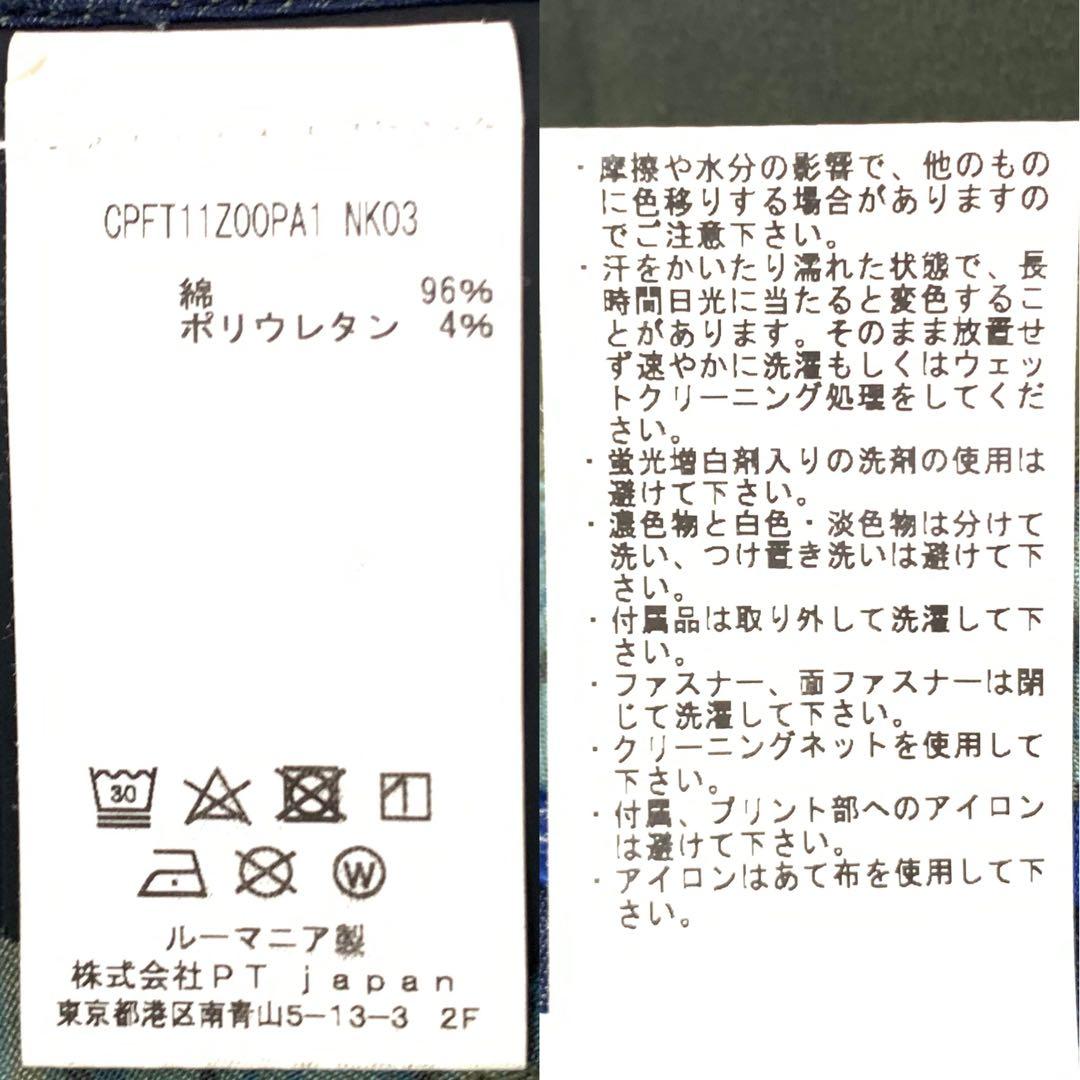 CPFT11Z00PA1 NK03
綿 96%
ポリウレタン 4%
30
W
ルーマニア製
株式会社PT japan
東京都港区南青山5-13-3 2F
・摩擦や水分の影響で、他のもの
に色移りする場合がありますの
でご注意下さい。
・汗をかいたり濡れた状態で、長
時間日光に当たると変色するこ
とがあります。そのまま放置せ
ず速やかに洗濯もしくはウェッ
トクリーニング処理をしてくだ
さい。
・蛍光増白剤入りの洗剤の使用は
避けて下さい。
・濃色物と白色・淡色物は分けて
洗い、つけ置き洗いは避けて下
さい。
・付属品は取り外して洗濯して下
さい。
・ファスナー、面ファスナーは閉
じて洗濯して下さい。
・クリーニングネットを使用して
下さい。
・付属、プリント部へのアイロン
は避けて下さい。
・アイロンはあて布を使用して下
さい。